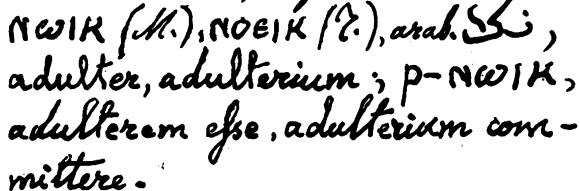 ⲛⲱⲓⲕ (M.), ⲛⲟⲉⲓⲕ (T.), arab. ,
adulter, adulterium; ⲣ-ⲛⲱⲓⲕ,
adulterem esse, adulterium com-
mittere.